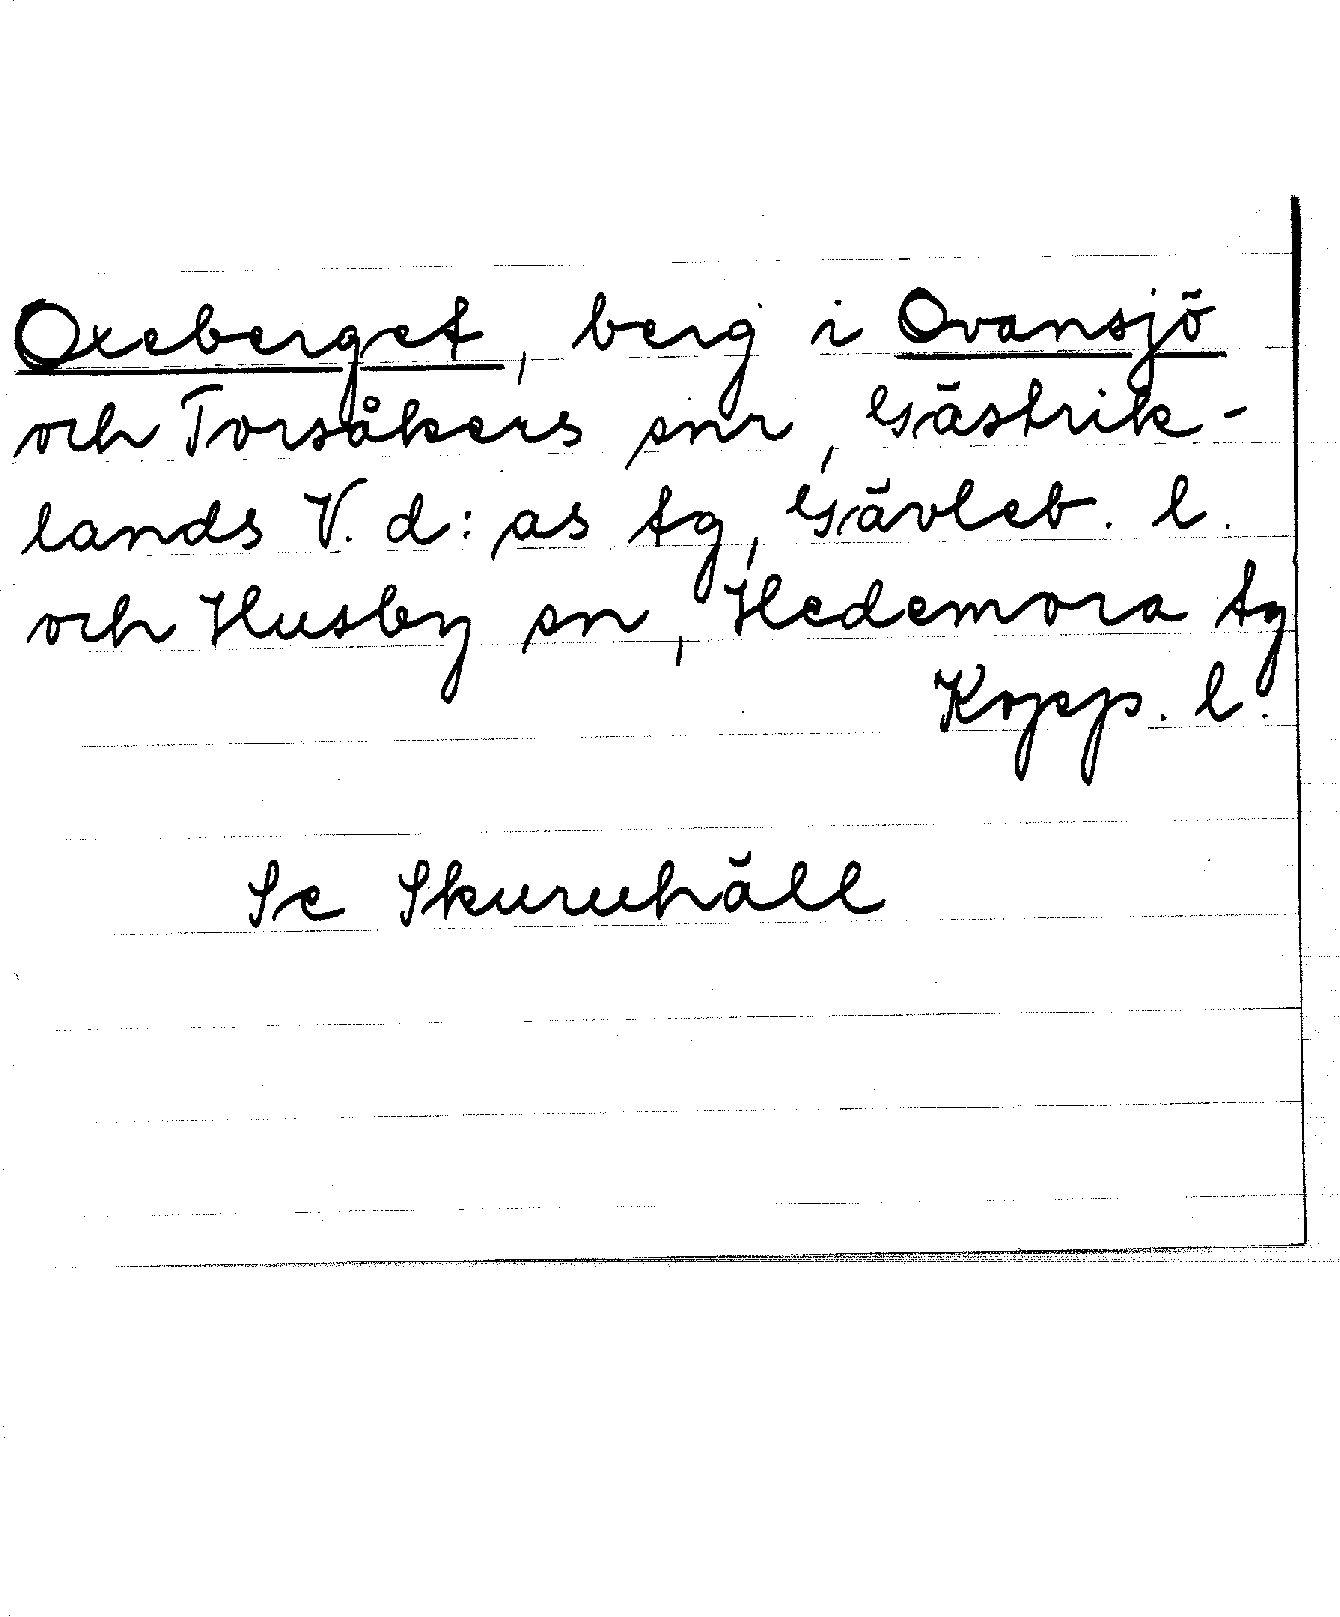 Oxeberget, berg i Ovansjö
och Torsåkers snr, Gästrik-
lands V. d:as tg, Gävleb. l.
och Husby sn, Hedemora tg
Kopp. l.
Se Skuruhäll